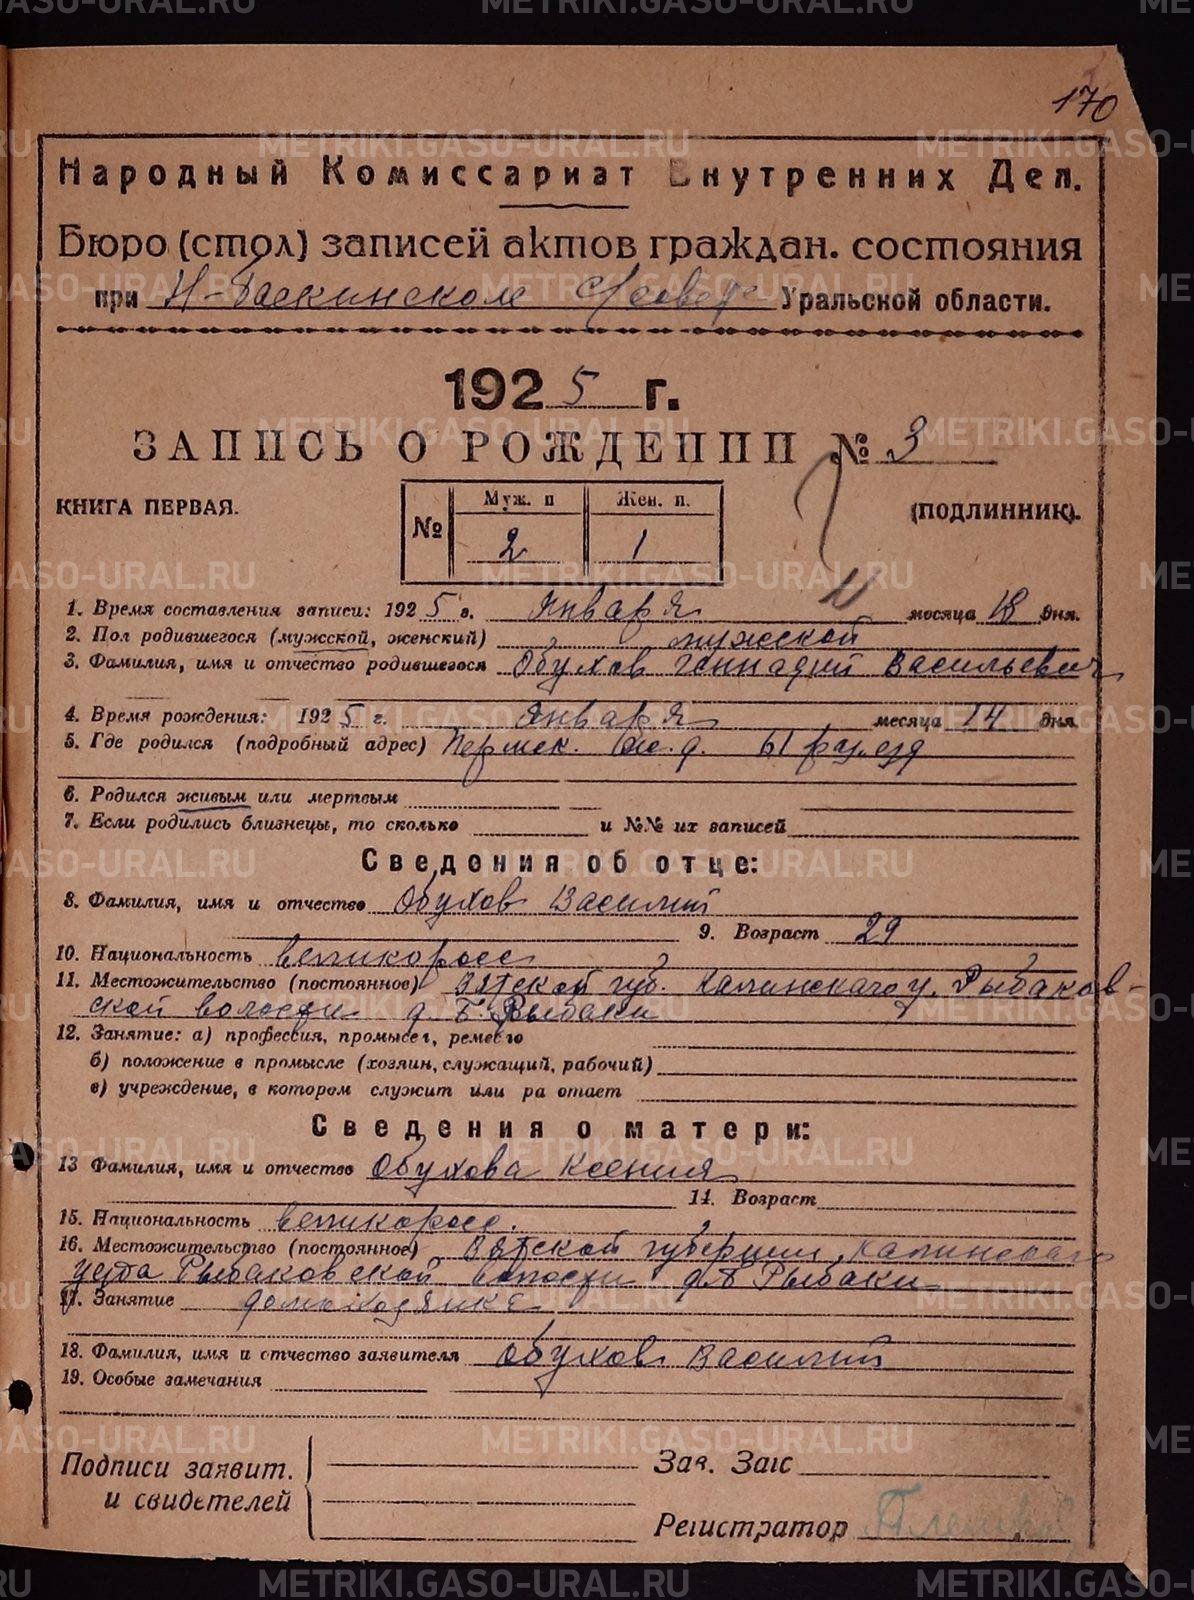 170
Народный Комиссариат Внутренних Дел.
Бюро (стол) записей актов граждан. состояния
при Н-Баскинском С/совете Уральской области.
1925 г.
ЗАПИСЬ О РОЖДЕНИИ № 3
КНИГА ПЕРВАЯ.
№ Муж. п Жен. п.
2 1
(ПОДЛИННИК).
1. Время составления записи: 1925 г. Января месяца 18 дня.
2. Пол родившегося (мужской, женский) мужской
3. Фамилия, имя и отчество родившегося Обухов Геннадий Васильевич
4. Время рождения: 1925 г. Января месяца 14 дня
5. Где родился (подробный адрес) Пермск. ж.д. 61 разъезд
6. Родился живым или мертвым
7. Если родились близнецы, то сколько и №№ их записей
Сведения об отце:
8. Фамилия, имя и отчество Обухов Василий
9. Возраст 29
10. Национальность великоросс
11. Местожительство (постоянное) Вятской губ. Калинскаго у. Рыбаков-
ской волости д. Б. Рыбаки
12. Занятие: а) профессия, промысел, ремесло
б) положение в промысле (хозяин, служащий, рабочий)
в) учреждение, в котором служит или ра отает
Сведения о матери:
13 Фамилия, имя и отчество Обухова Ксения
14. Возраст
15. Национальность великоросс.
16. Местожительство (постоянное) Вятской губернии, Калинскаго
уезда Рыбаковской волости д. Б Рыбаки
17. Занятие домохозяйка
18. Фамилия, имя и отчество заявителя Обухов Василий
19. Особые замечания
Подписи заявит.
и свидетелей
Зав. Загс
Регистратор
METRIKI.GASO-URAL.RU